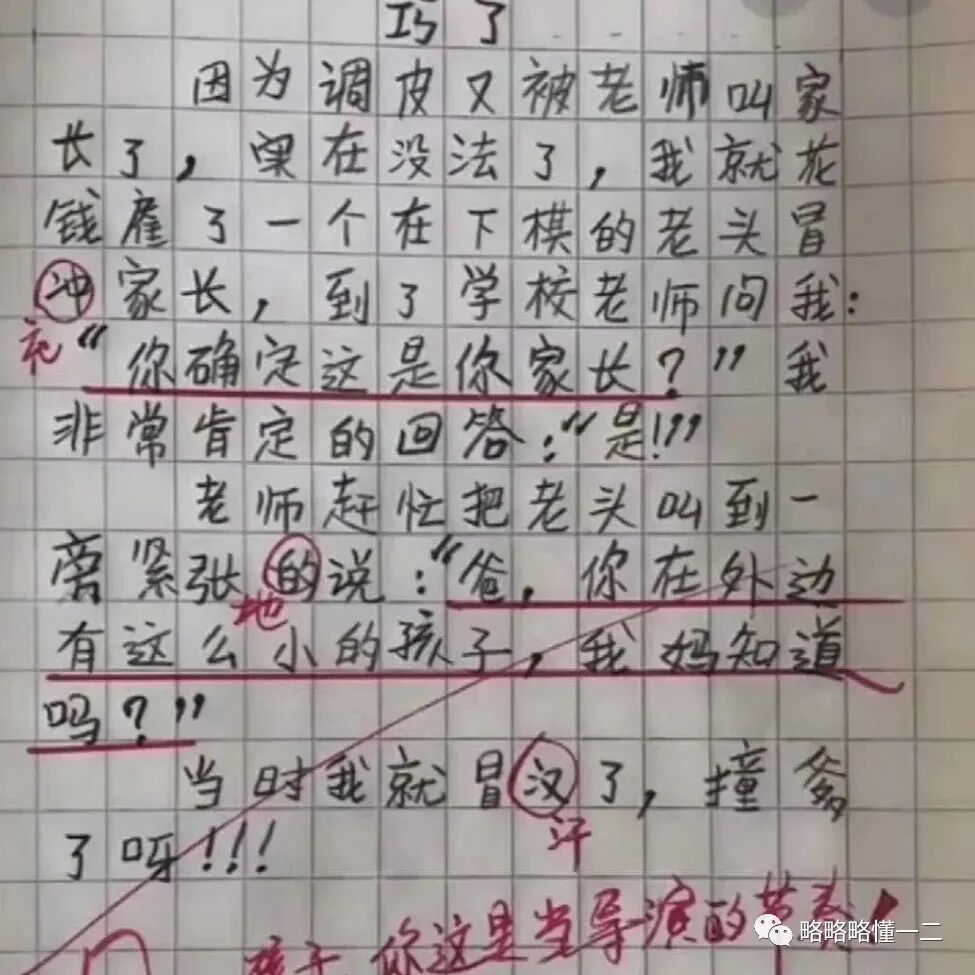 巧了
因为调皮又被老师叫家
长了，实在没法了，我就花
钱雇了一个在下棋的老头冒
冲家长，到了学校老师问我：
充
“你确定这是你家长？”我
非常肯定的回答：“是！”
老师赶忙把老头叫到一
旁紧张的说：“爸，你在外边
地
有这么小的孩子，我妈知道
吗？”
当时我就冒汉了，撞爹
汗
了呀！！！
孩子，你这是当导演的节奏！
略略略懂一二